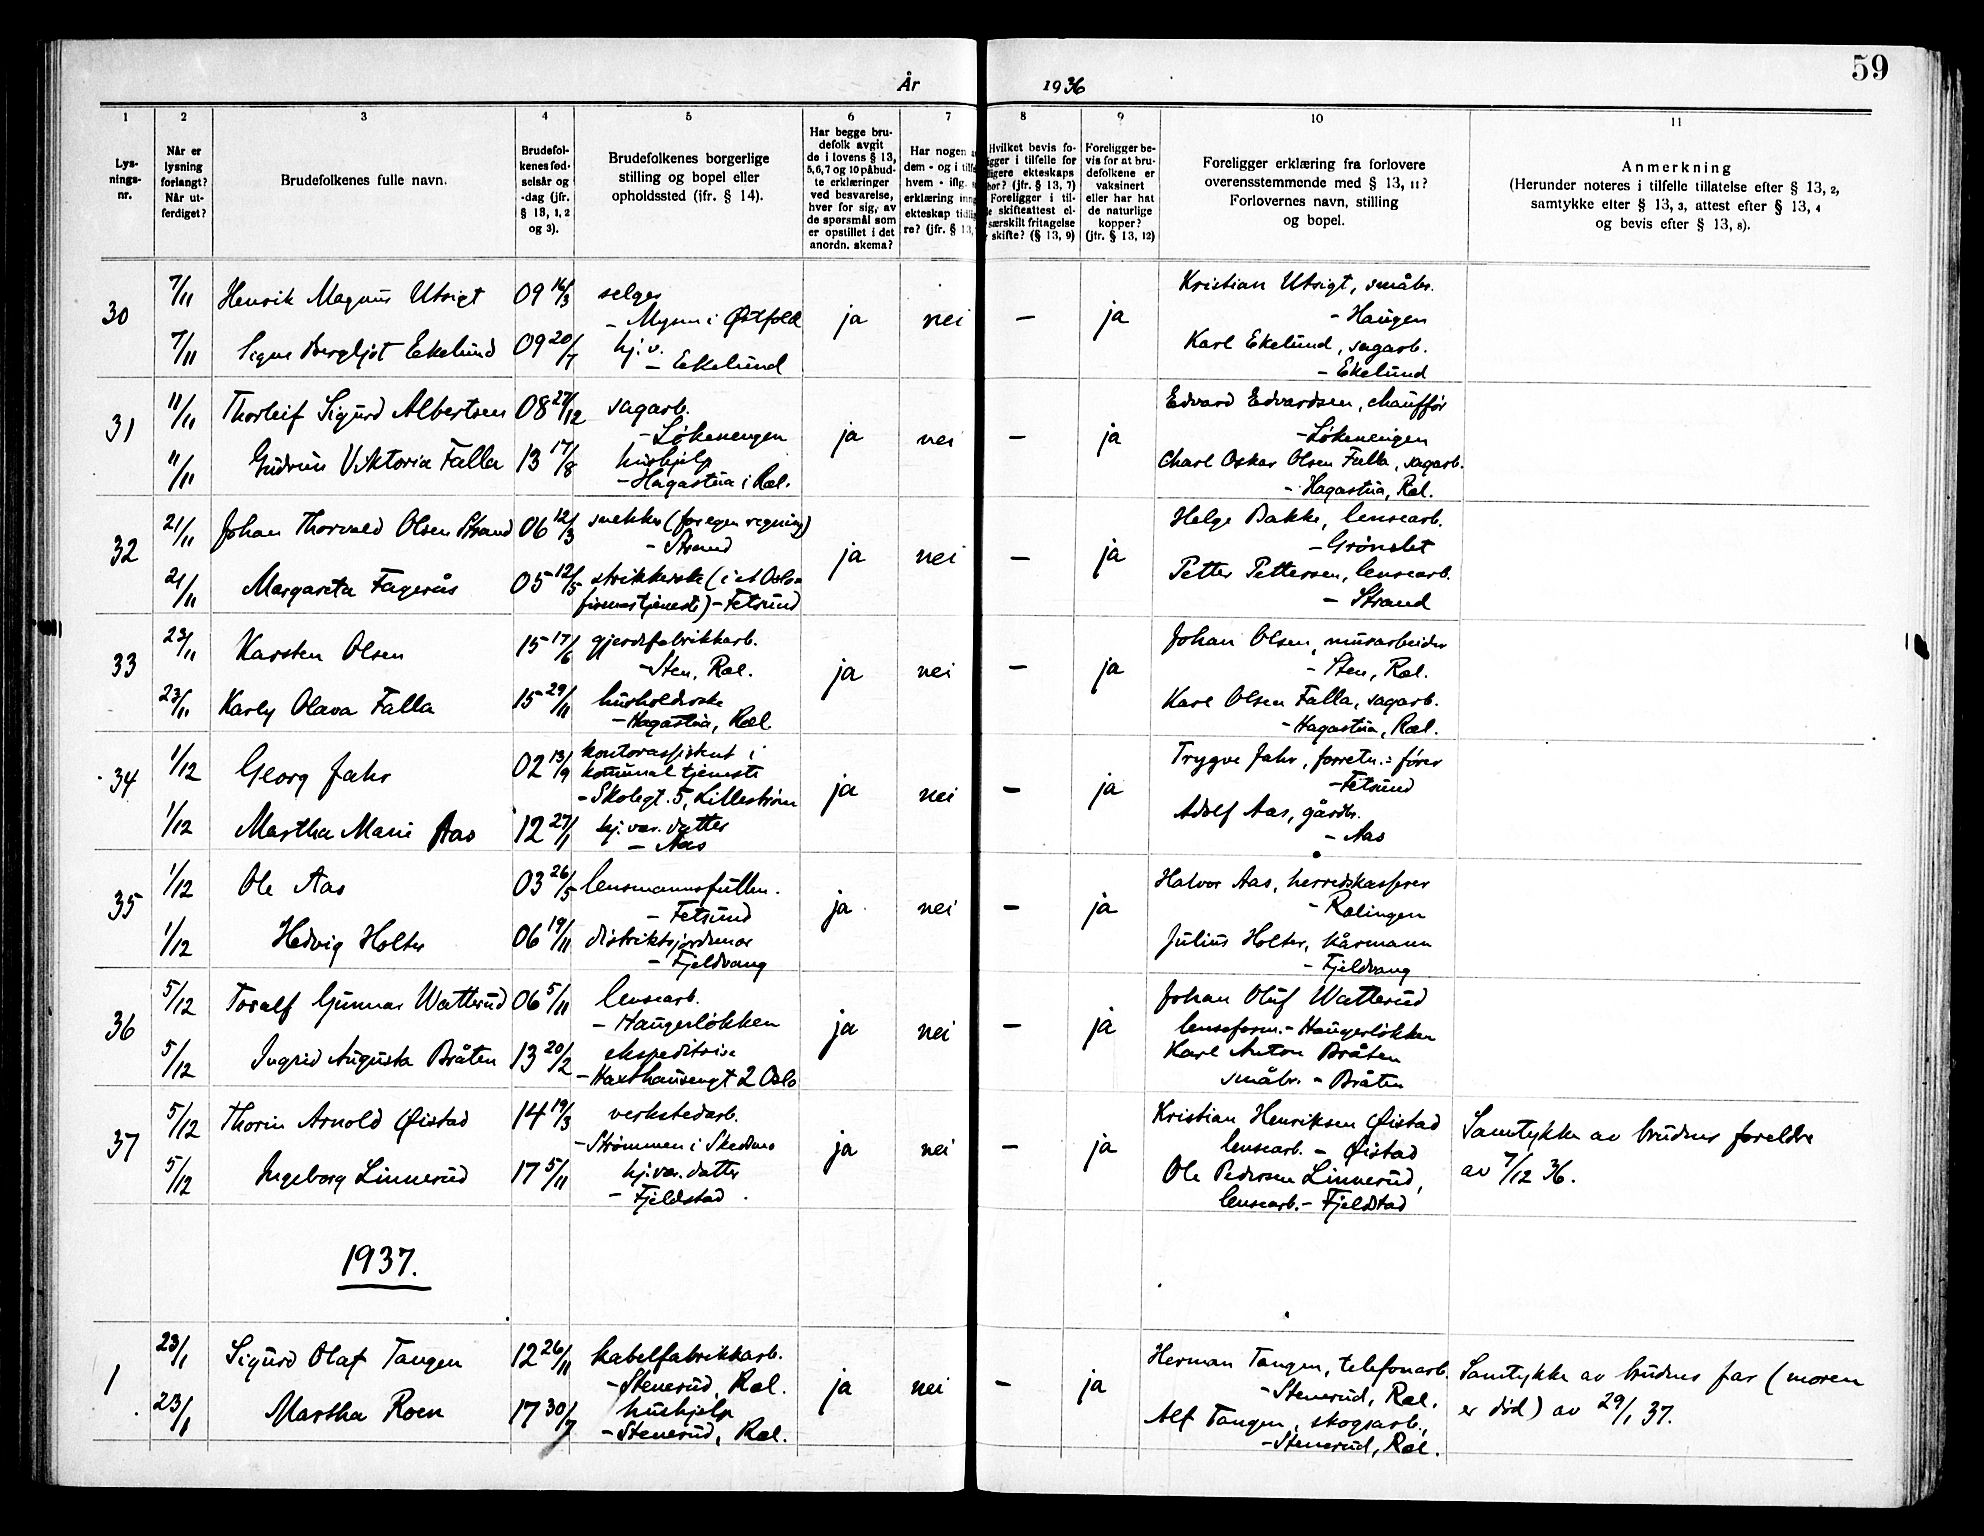 59
År 1936
1 2 3 4 5 6 7 8 9 10 11
Lys-
nings-
nr.
Når er
lysning
forlangt?
Når ut-
ferdiget?
Brudefolkenes fulle navn.
Brudefol-
kenes fød-
selsår og
-dag (jfr.
§ 13, 1, 2
og 3).
Brudefolkenes borgerlige
stilling og bopel eller
opholdssted (jfr. § 14).
Har begge bru-
defolk avgit
de i lovens § 13,
5, 6, 7 og 10 påbud-
te erklæringer
ved besvarelse,
hver for sig, av
de spørsmål som
er opstillet i det
anordn. skema?
Har nogen
dem - og i
hvem - iflg.
erklæring
ekteskap
re? (jfr. § 13,
Hvilket bevis fo-
ligger i tilfelle for
ligere ekteskaps
(jfr. § 13, 7)
Foreligger i til-
skifteattest el-
særskilt fritagelse
skifte? (§ 13, 9)
Foreligger be-
vis for at bru-
defolkene er
vaksinert
eller har hat
de naturlige
kopper?
(jfr. § 13, 12)
Foreligger erklæring fra forlovere
overensstemmende med § 13, 11?
Forlovernes navn, stilling
og bopel.
Anmerkning
(Herunder noteres i tilfelle tillatelse efter § 13, 2,
samtykke efter § 13, 3, attest efter § 13, 4
og bevis efter § 13, 8).
30 7/11 Henrik Magnus Utsigt 09 16/3 selger
- Mysen i Østfold ja nei - ja Kristian Utsigt, småbr.
- Haugen
7/11 Signe Bergljot Eekelund 09 20/7 hj.v.
- Eekelund
Karl Ekelund, sagarb.
- Ekelund
31 11/11 Thorleif Sigurd Albertsen 08 27/12 sagarb.
- Løkenengen ja nei - ja Edvard Edvardsen, chauffør
- Løkenengen
11/11 Gudrun Viktoria Falla 13 17/8 hushjelp
- Hagastua i Ræl.
Charl Oskar Olsen Falla, sagarb.
- Hagastua, Ræl.
32 21/11 Johan Thorvald Olsen Strand 06 12/3 snekker (for egen regning)
- Strand ja nei - ja Helge Bakke, lensearb.
- Grønslet
21/11 Margareta Fagerås 05 12/5 strikkerske (i et Oslo-
firmas tjeneste) - Fetsund
Petter Pettersen, lensearb.
- Strand
33 23/11 Karsten Olsen 15 17/6 gjerdefabrikkarb.
- Sten, Ræl. ja nei - ja Johan Olsen, murarbeider
- Sten, Ræl.
23/11 Karly Olava Falla 15 29/11 husholderske
- Hagastua, Ræl.
Karl Olsen Falla, sagarb.
- Hagastua, Ræl.
34 1/12 Georg Jahr 02 13/9 kontorassistent i
komunal tjeneste
- Skolegt. 5, Lillestrøm ja nei - ja Trygve Jahr, forretn.: fører
- Fetsund
1/12 Martha Marie Aas 12 27/1 hj.vær. datter
- Aas
Adolf Aas, gårdbr.
- Aas
35 1/12 Ole Aas 03 26/5 lensmannsfullm.
- Fetsund ja nei - ja Halvor Aas, herredskasserer
- Rælingen
1/12 Hedvig Holter 06 19/11 distriktsjordmor
- Fjeldvang
Julius Holter, kårmann
- Fjeldvang
36 5/12 Toralf Gunnar Watterud 06 5/11 lensearb.
- Haugerløkken ja nei - ja Johan Oluf Watterud
lenseform. - Haugerløkken
5/12 Ingrid Augusta Bråten 13 20/2 ekspeditrise
- Haxthausengt 2 Oslo
Karl Anton Bråten
småbr. - Bråten
37 5/12 Thorin Arnold Øistad 14 19/3 verkstedarb.
- Strømmen i Skedsmo ja nei - ja Kristian Henriksen Øistad
lensearb. - Øistad
Samtykke av brudens foreldre
av 7/12 36.
5/12 Ingeborg Linnerud 17 5/11 hj.vær. datter
- Fjeldstad.
Ole Pedersen Linnerud,
lensearb. - Fjeldstad
1937.
1 23/1 Sigurd Olaf Tangen 12 26/11 kabelfabrikkarb.
- Stenerud, Ræl. ja nei - ja Herman Tangen, telefonarb.
- Stenerud, Ræl.
Samtykke av brudens far (moren
er død) av 29/1 37.
23/1 Martha Roen 17 30/7 hushjelp
- Stenerud, Ræl.
Alf Tangen, skogsarb.,
- Stenerud, Ræl.